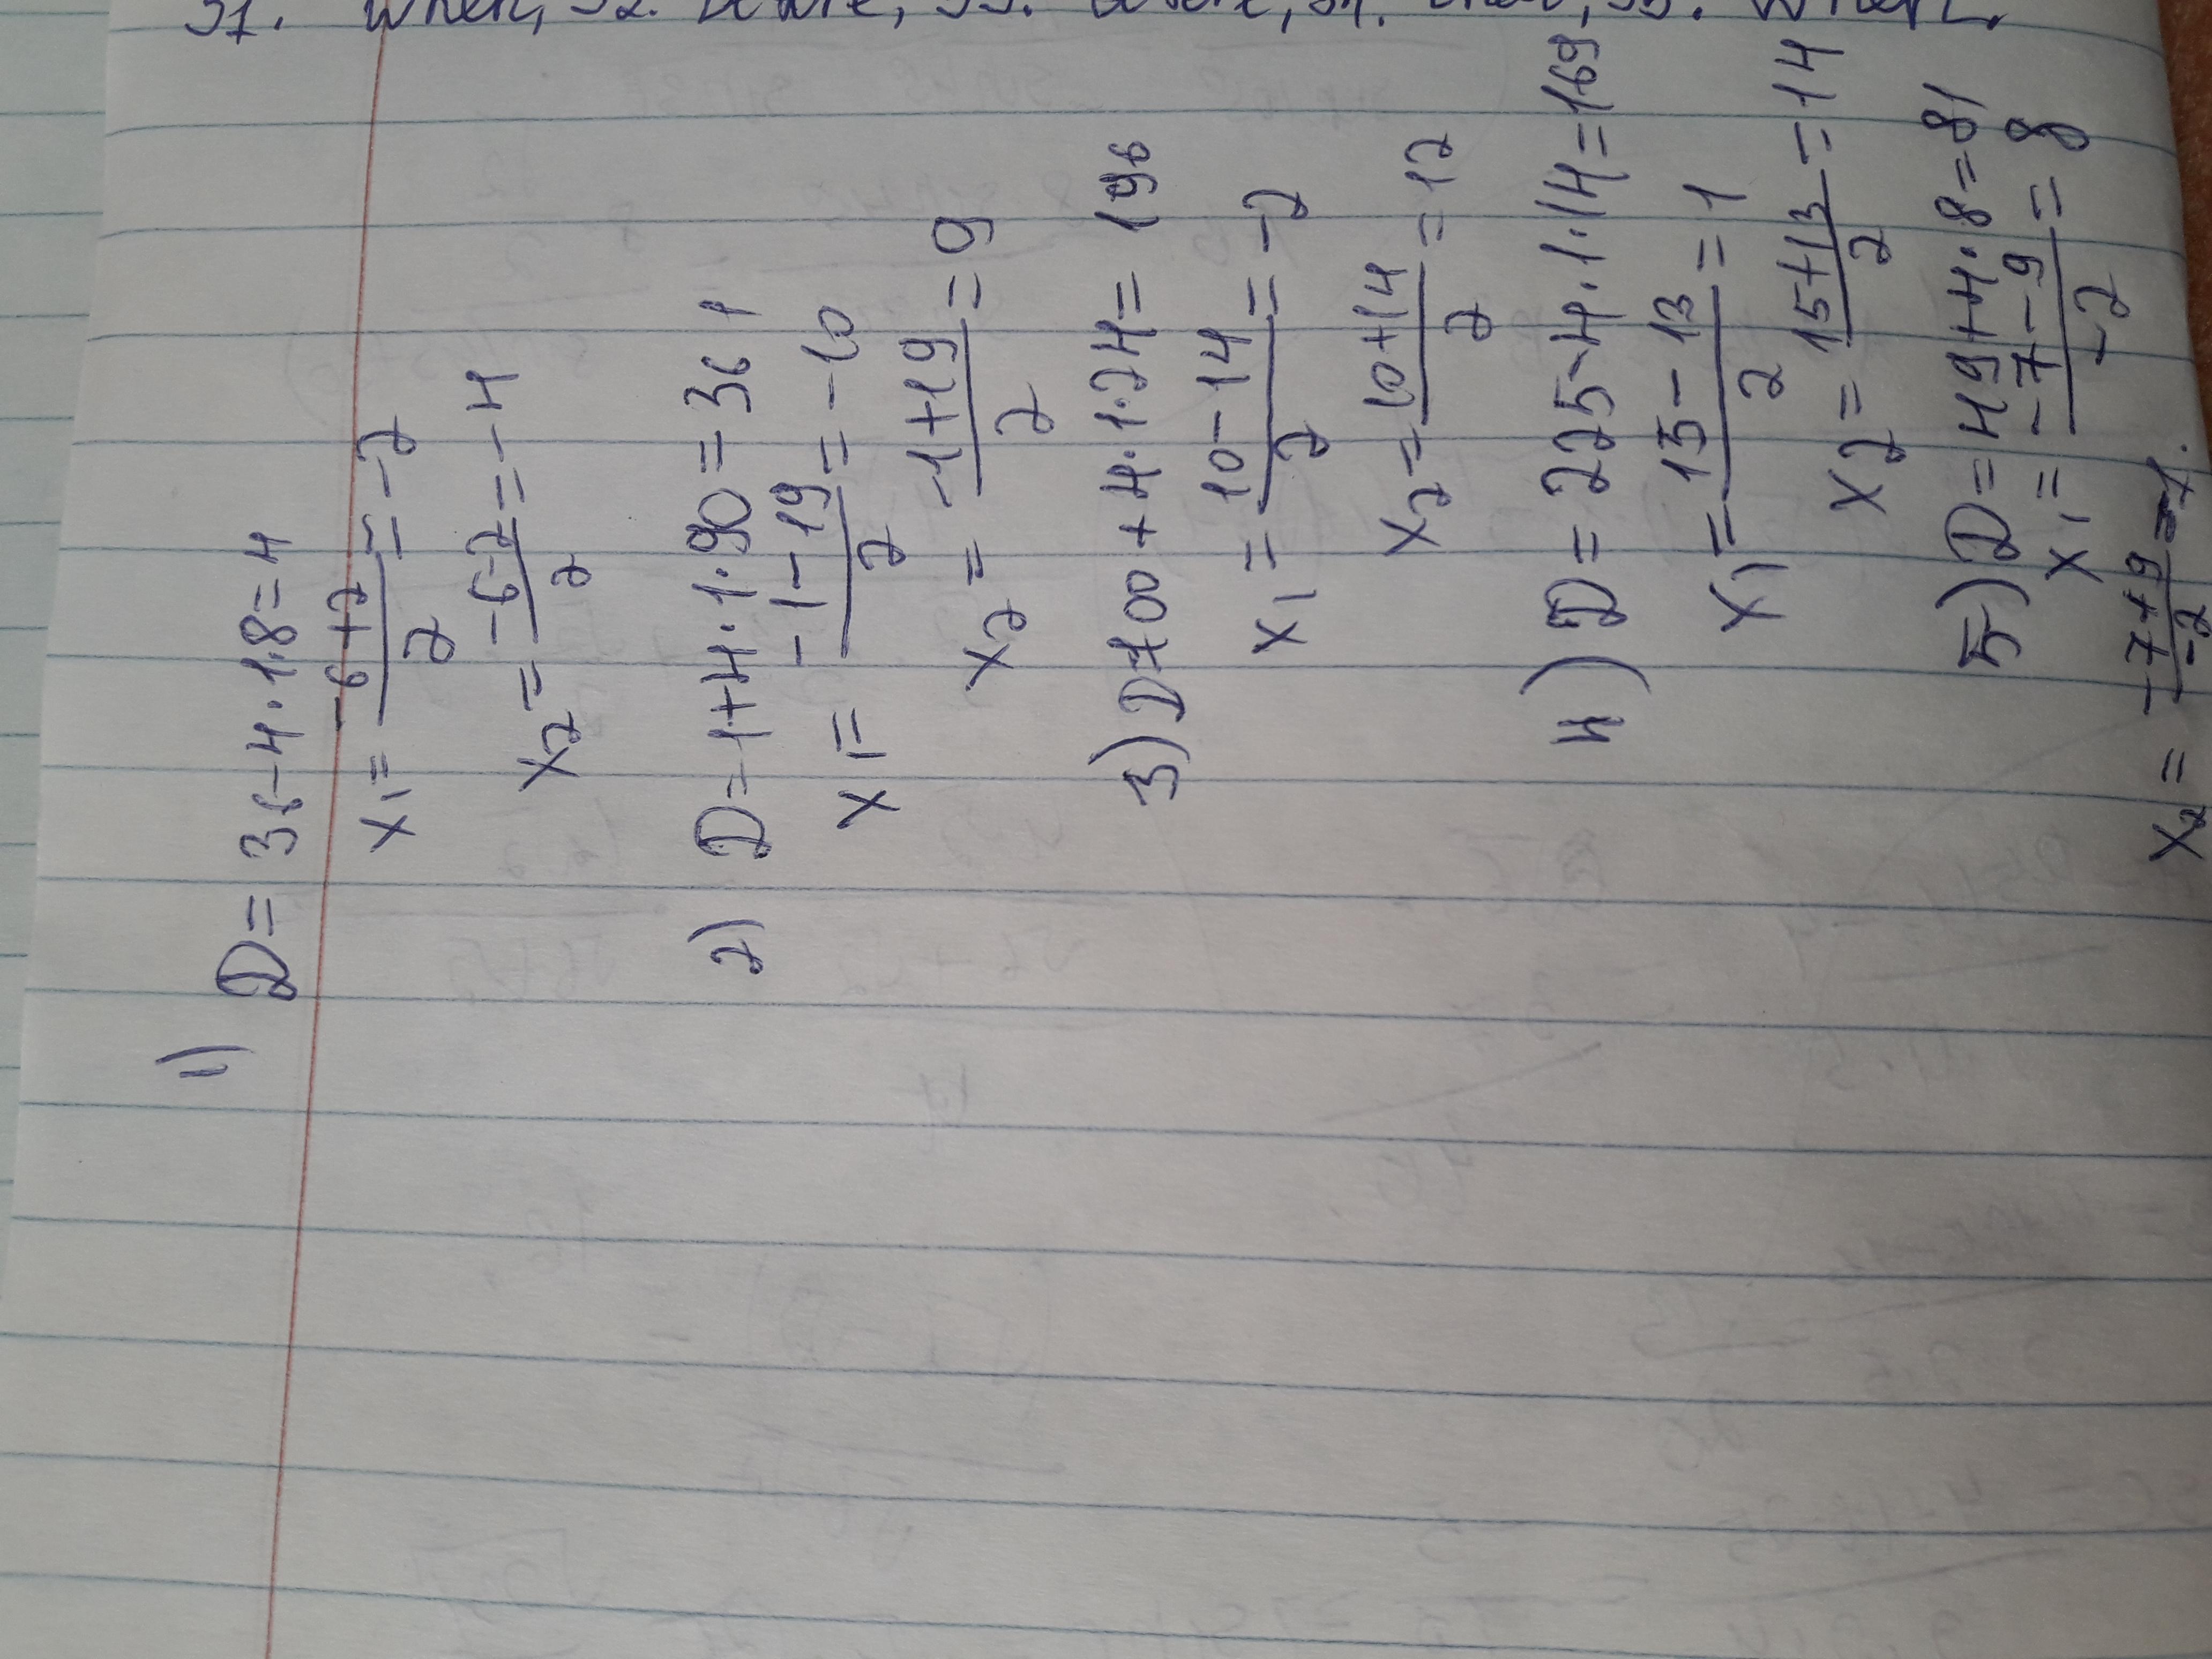 1) D = 36 - 4 · 1 · 8 = 4
x1 = -6+2/2 = -2
x2 = -6-2/2 = -4
2) D = 1+4 · 1 · 90 = 361
x1 = -1-19/2 = -10
x2 = -1+19/2 = 9
3) D = 100 + 4 · 1 · 24 = 196
x1 = 10-14/2 = -2
x2 = 10+14/2 = 12
4) D = 225-4 · 1 · 14 = 169
x1 = 15-13/2 = 1
x2 = 15+13/2 = 14
5) D = 49+4 · 8 = 81
x1 = -7-9/-2 = 8
x2 = -7+9/-2 = -1.